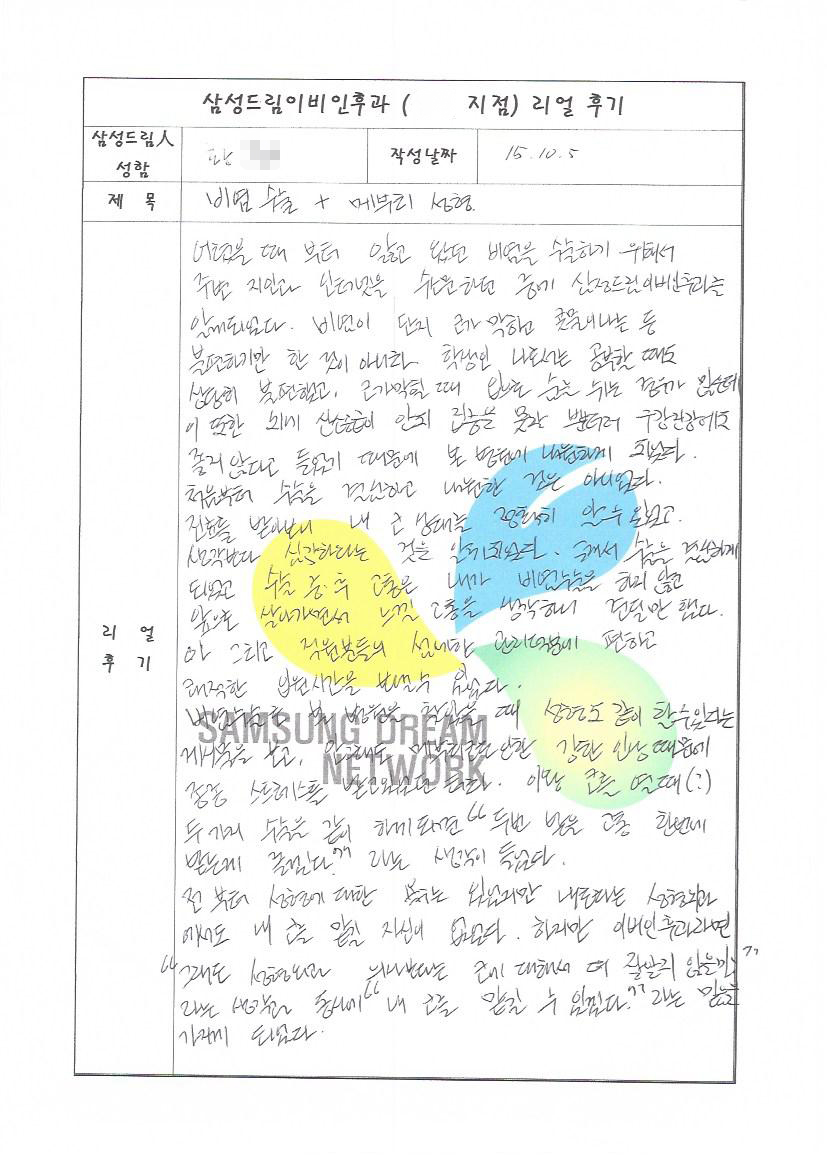 삼성드림이비인후과 ( 지점) 리얼 후기
삼성드림人
성함
작성날짜
15. 10. 5
제 목
비염 수술 + 메부리 성형.
리 얼
후 기
어렸을 때 부터 앓고 왔던 비염을 수술하기 위해서
주변 지인과 인터넷을 하던 중에 삼성드림이비인후과를
알게되었다. 비염이 단지 코가 막히고 콧물이나는 등
불편하기만 한 것이 아니라 학생인 나로서는 공부할 때도
상당히 불편했고, 코가막힐 때 입으로 숨을 쉬는 경우가 많은데
이 또한 뇌에 산소공급이 안되 집중을 못할 뿐더러 구강건강에도
좋지 않다고 들었기 때문에 본 병원에 내원하게 되었다.
처음부터 수술을 결심하고 내원한 것은 아니었다.
진료를 받아보니 내 코 상태를 정확히 알 수 있었고.
생각보다 심각하다는 것을 알게되었다. 그래서 수술을 결심하게
되었고 수술 중·후 고통은 내가 비염수술을 하지 않고
앞으로 살아가면서 느낄 고통을 생각하니 견딜만 했다.
아 그리고 직원분들의 섬세한 관리덕분에 편하고
쾌적한 입원시간을 보낼수 있었다.
비염수술로 본 병원을 찾았을 때 성형도 같이 할수있다는
게시물을 보고, 안그래도 메부리코로 인한 강한 인상 때문에
종종 스트레스를 받고있었던 터라. 이왕 코를 열 때(?)
두가지 수술을 같이 하게되면 “두번 받을 고통 한번에
받는게 좋겠다” 라는 생각이 들었다.
전 부터 성형에 대한 욕구는 있었지만 내노라는 성형외과
에서도 내 코를 맡길 자신이 없었다. 하지만 이비인후과라면
“그래도 성형외과 의사보다는 코에 대해서 더 잘알지 않을까”
라는 생각과 동시에 “내 코를 맡길 수 있겠다.” 라는 믿음을
가지게 되었다.
SAMSUNG DREAM
NETWORK